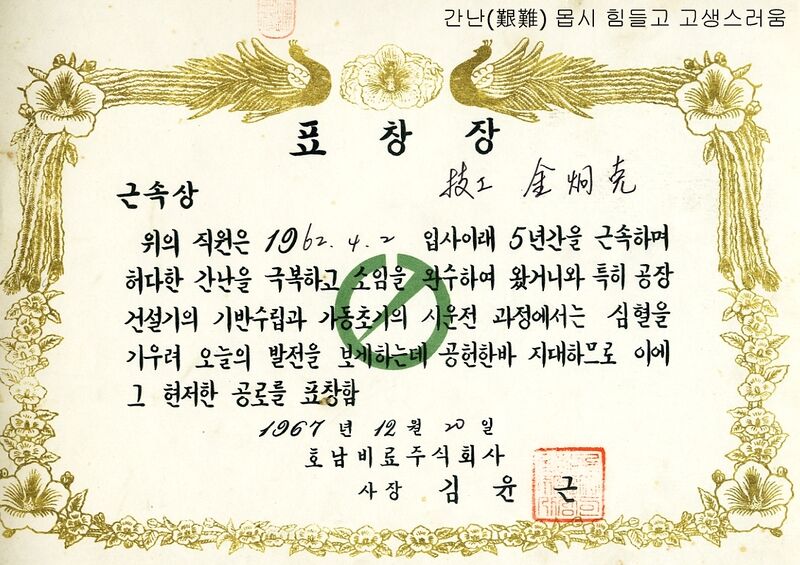 간난(艱難) 몹시 힘들고 고생스러움
표 창 장
技工 金炯克
근속상
위의 직원은 1962. 4. 2 입사이래 5년간을 근속하며
허다한 간난을 극복하고 소임을 완수하여 왔거니와 특히 공장
건설기의 기반수립과 가동초기의 시운전 과정에서는 심혈을
기우려 오늘의 발전을 보게하는데 공헌한바 지대하므로 이에
그 현저한 공로를 표창함
1967 년 12 월 20 일
호남비료주식회사
사장 김 윤 근